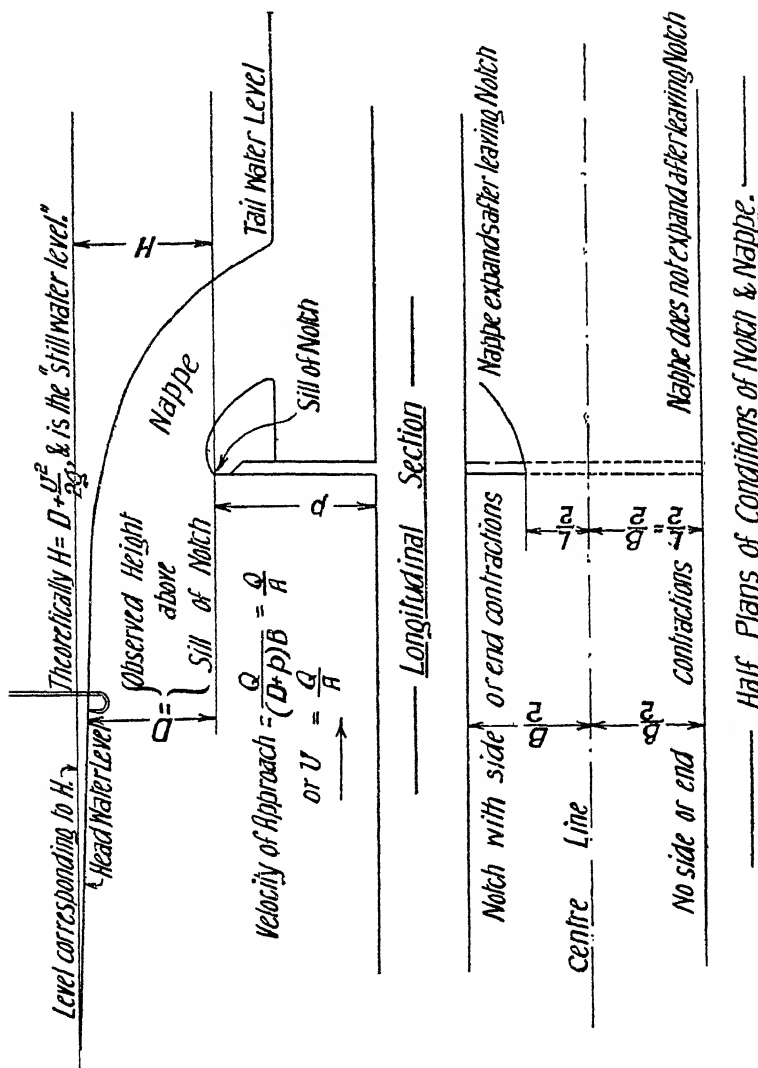 Level corresponding to H.
Theoretically H = D + U²/2g, & is the "still water level."
Head Water Level
D = { Observed Height
above
Sill of Notch
H
Nappe
Tail Water Level
Sill of Notch
p
Velocity of Approach = Q/(D+p)B = Q/A
or U = Q/A
Longitudinal Section
Notch with side or end contractions
Nappe expands after leaving Notch
B/2
L/2
Centre Line
B/2
L/2 = B/2
No side or end contractions
Nappe does not expand after leaving Notch
Half Plans of Conditions of Notch & Nappe.